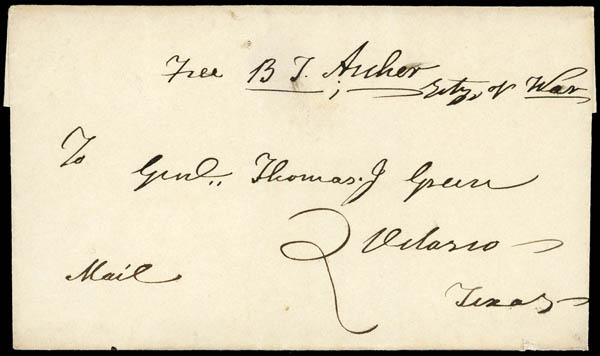 Free B T. Archer Secty of War
To
Genl,, Thomas. J Green
Velasco
Mail
Texas